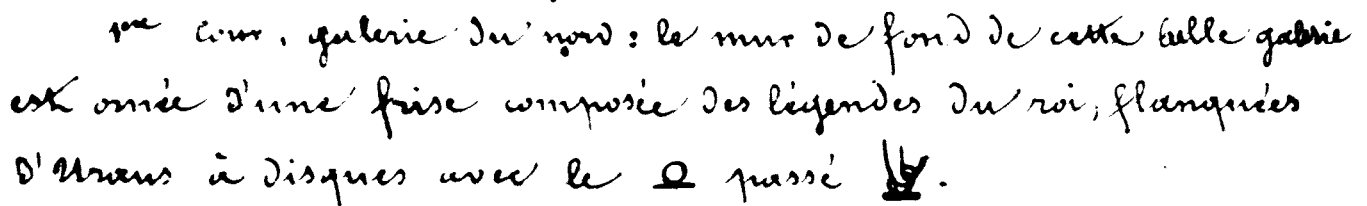 1ère cour, galerie du nord : le mur de fond de cette belle galerie
est ornée d'une frise composée des légendes du roi, flanquées
d'Uraeus à disques avec le 𓍶 passé